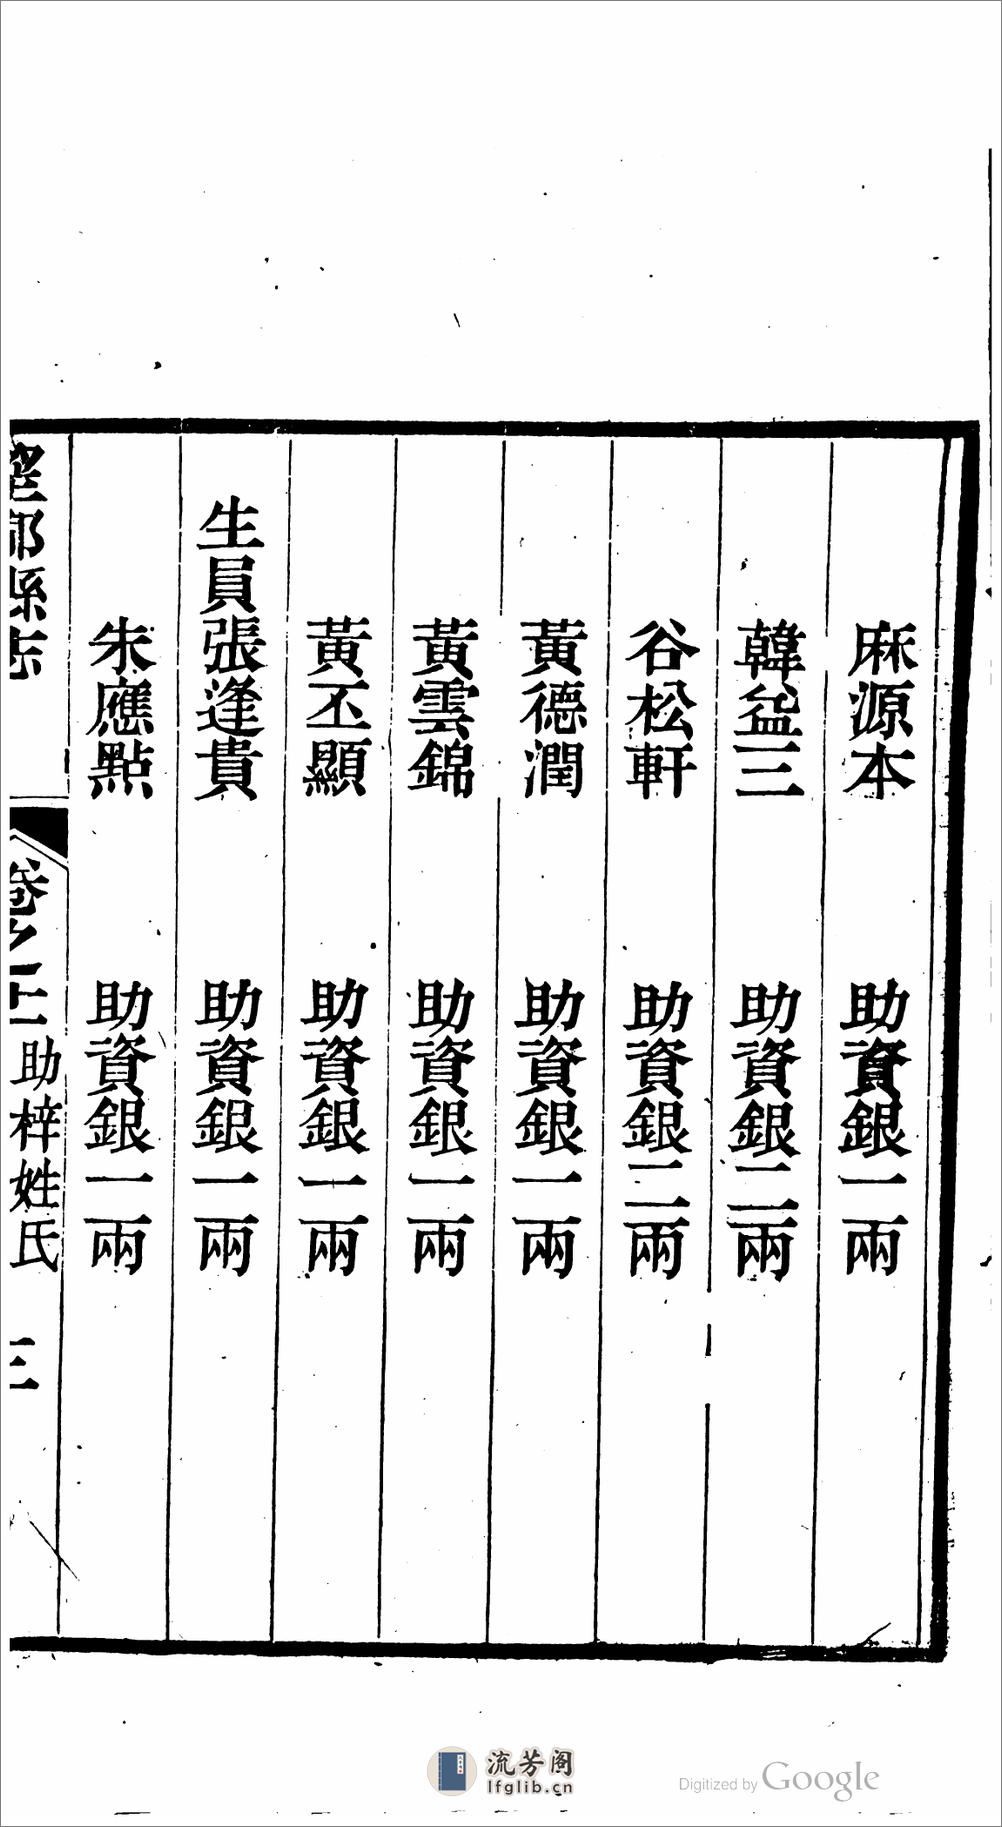 麻源本 助資銀一兩
韓益三 助資銀二兩
谷松軒 助資銀二兩
黃德潤 助資銀一兩
黃雲錦 助資銀一兩
黃丕顯 助資銀一兩
生員張逢貴 助資銀一兩
朱應點 助資銀一兩
望都縣志 卷之上 助梓姓氏 三
流芳阁
lfglib.cn
Digitized by Google